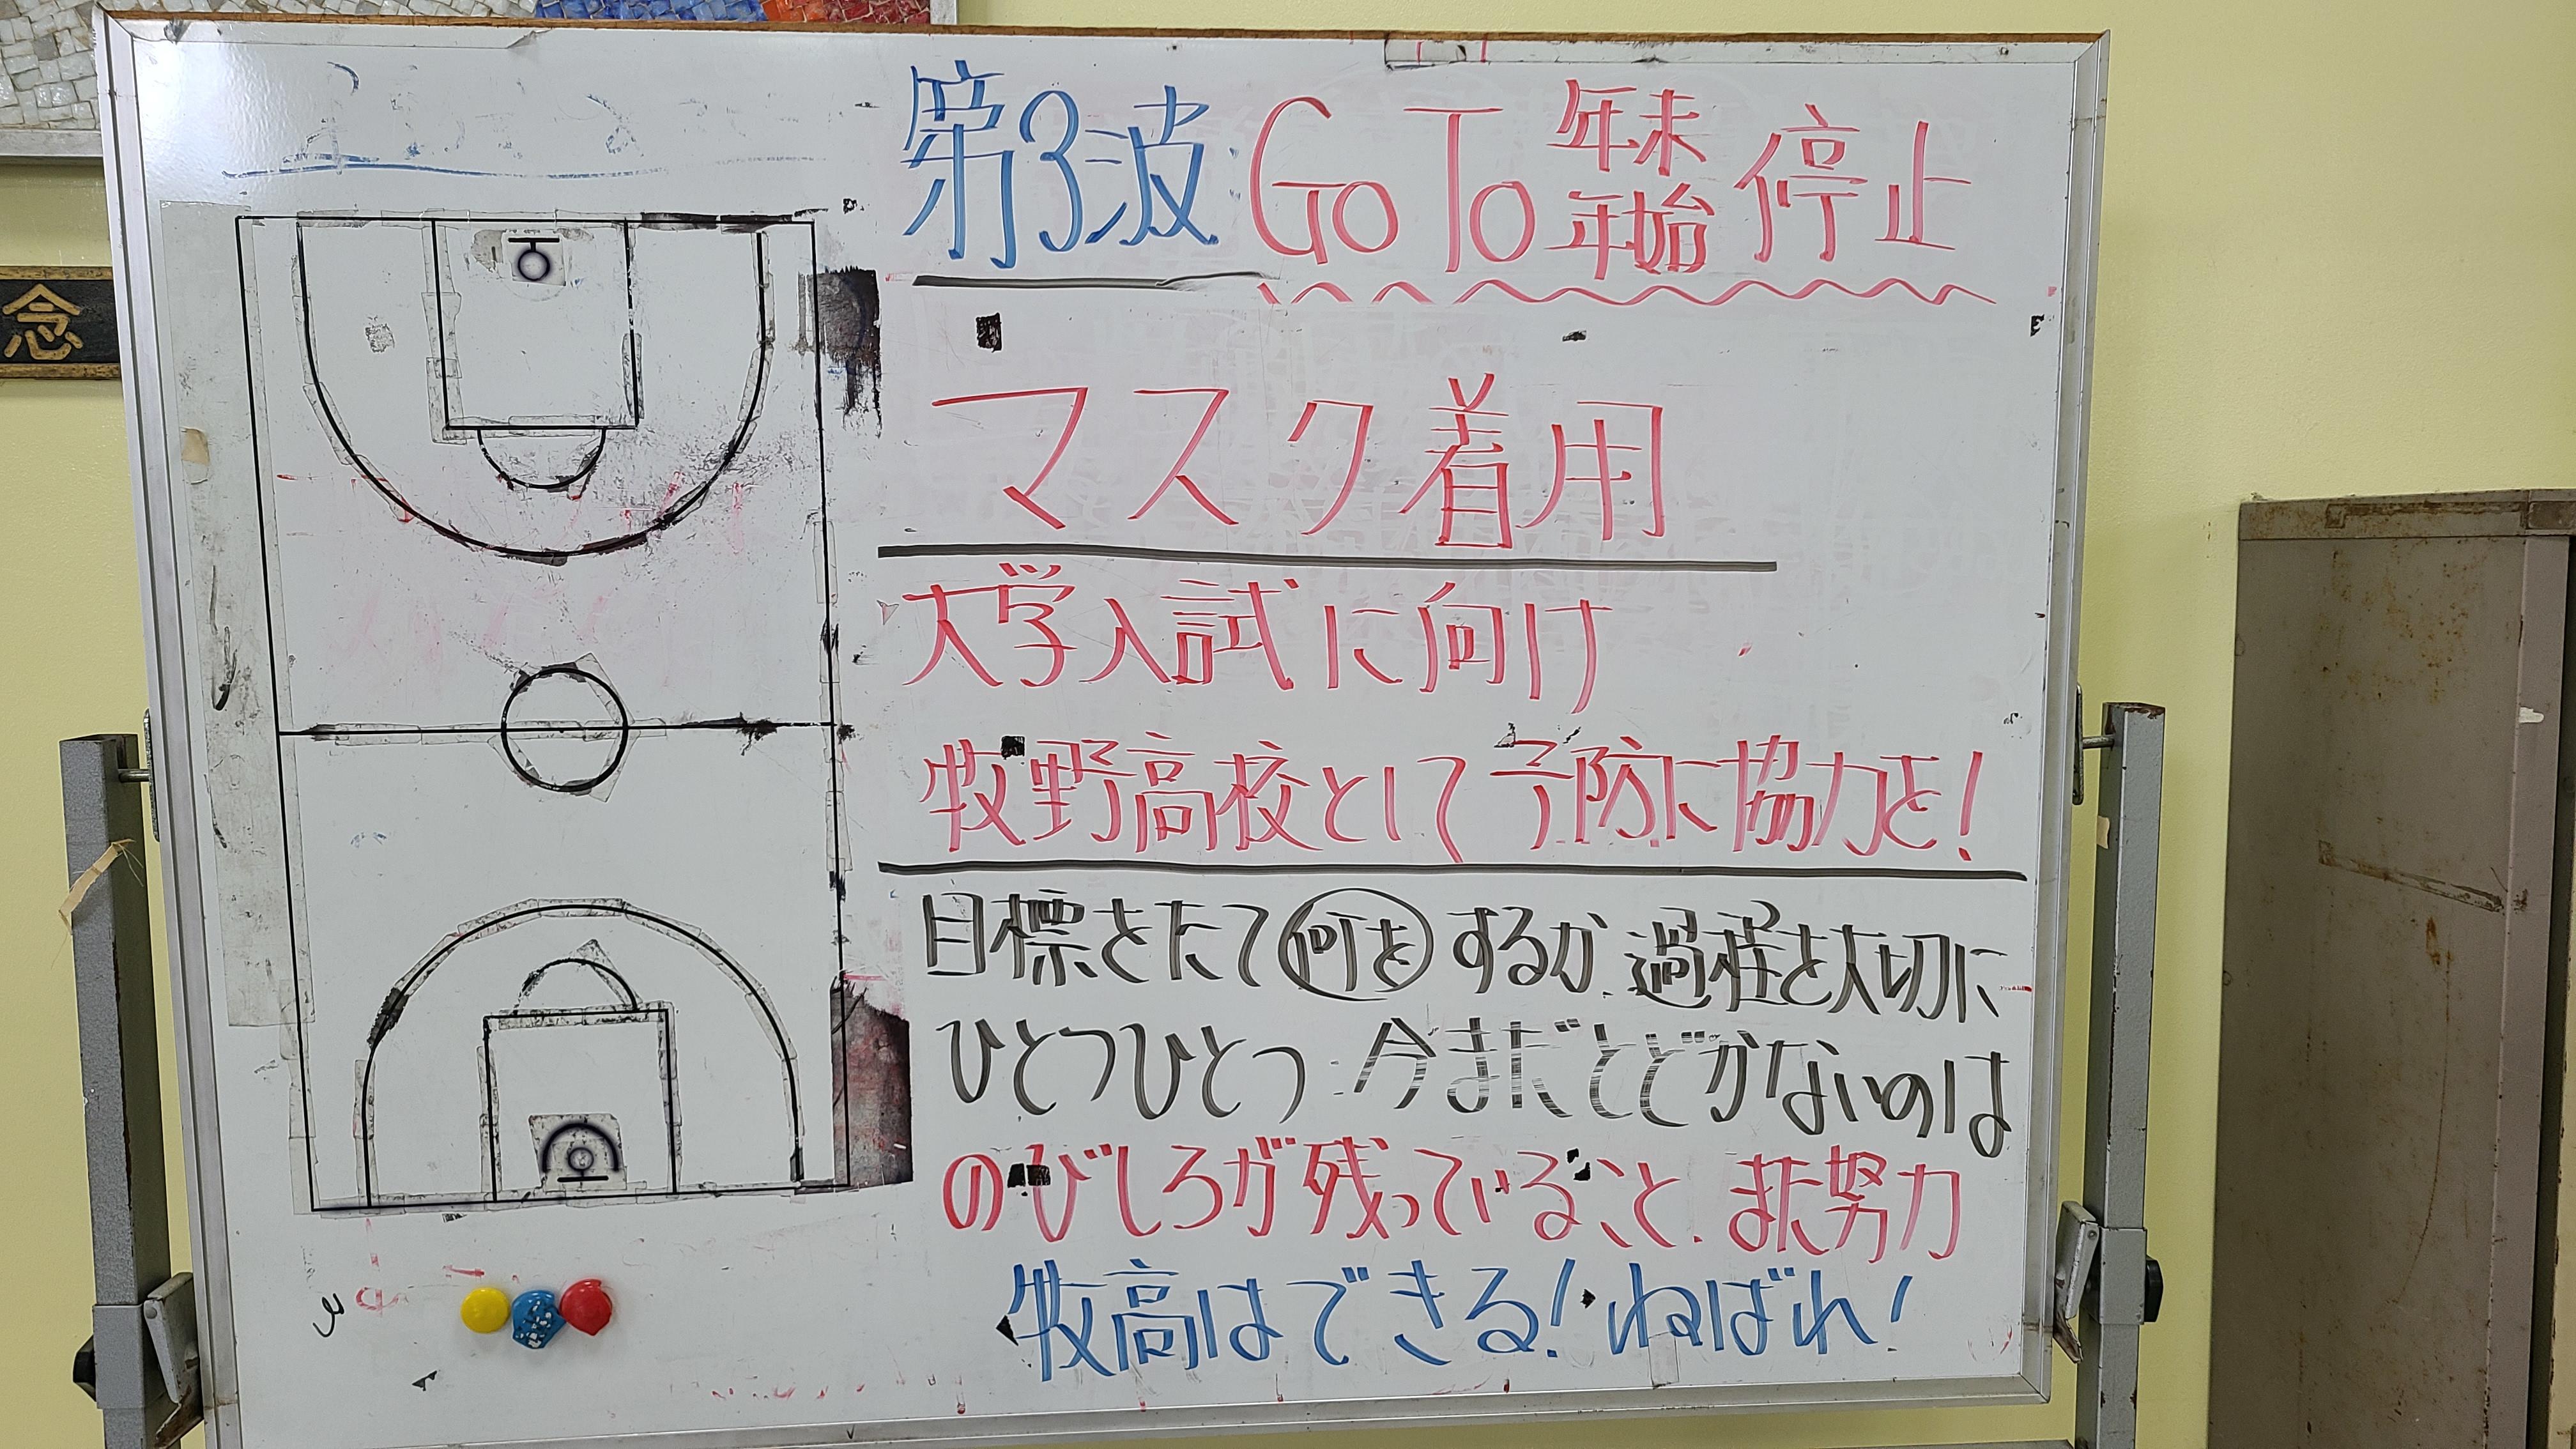 第3波 Go To 年末年始 停止
念
マスク着用
大学入試に向け
牧野高校として予防に協力を!
目標をたて何をするか. 過程を大切に
ひとつひとつ:今まだとどかないのは
のびしろが残っていること. また努力
牧高はできる!ねばれ!